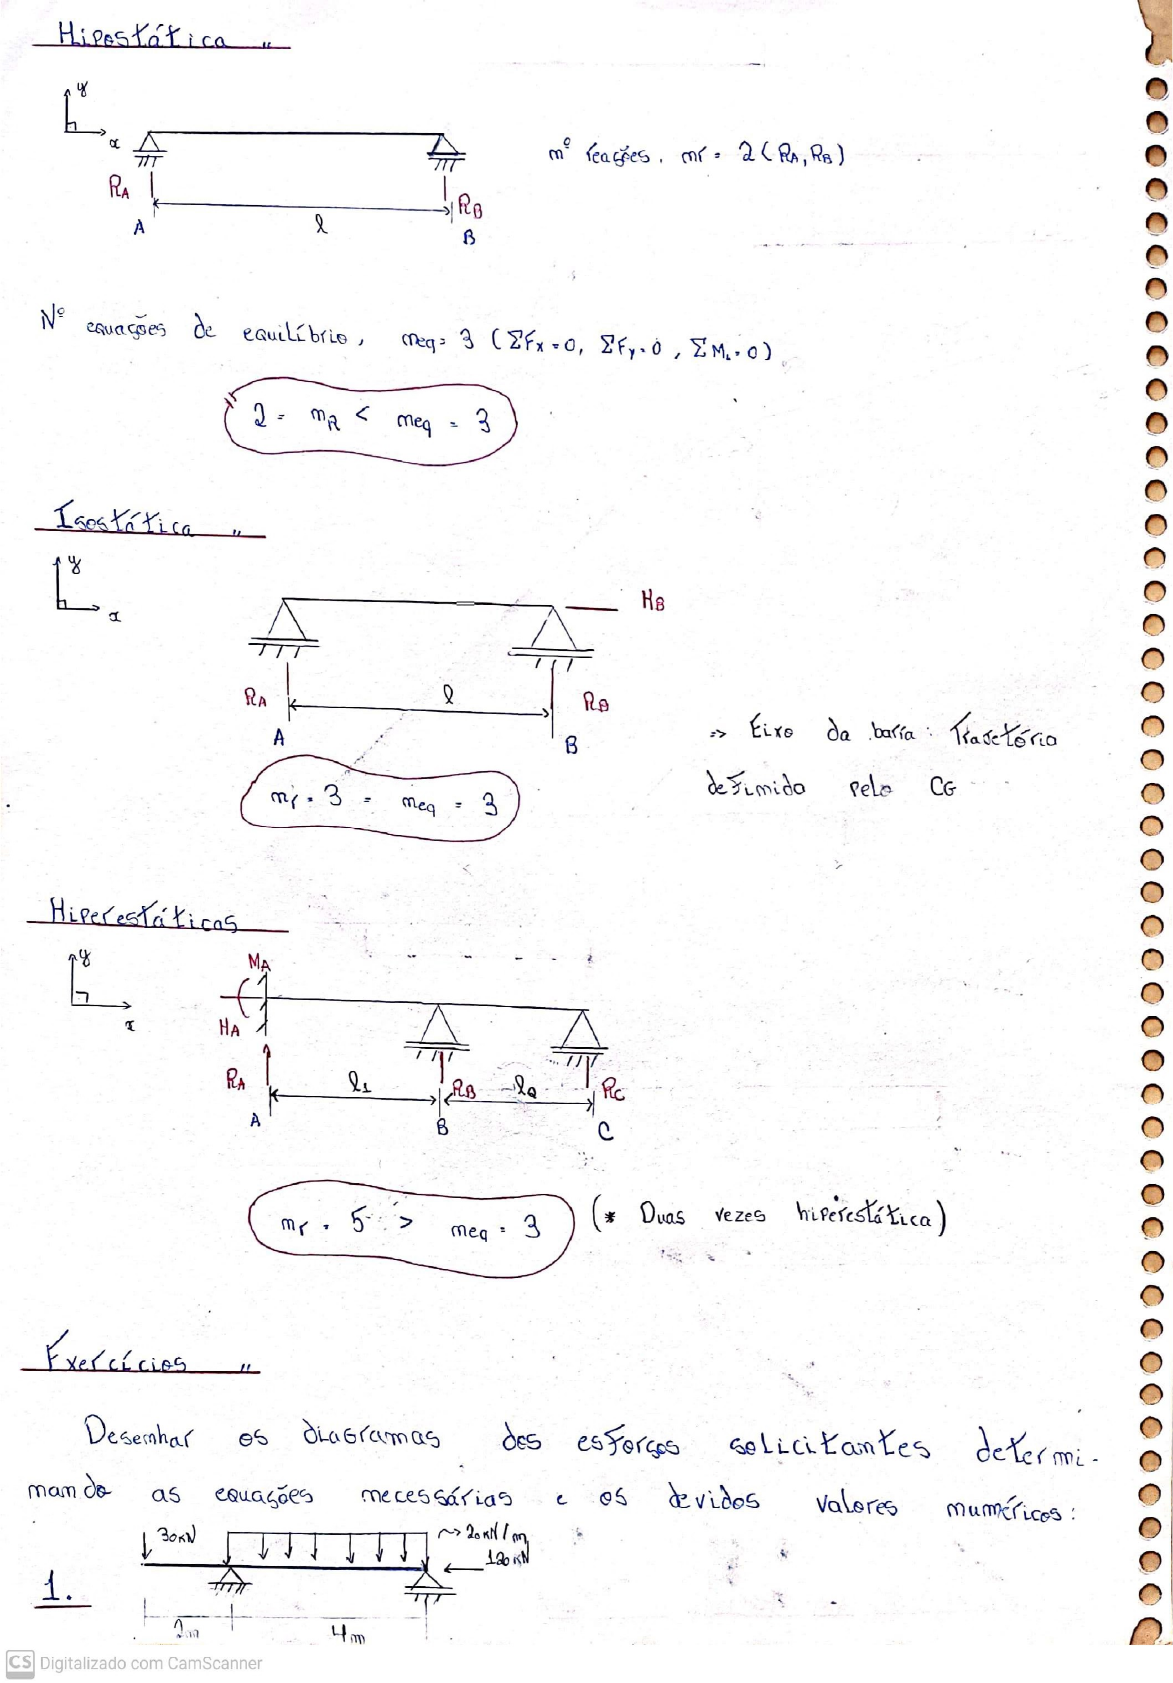 Hipostática "
y
x
nº reações, nr = 2 (RA, RB)
RA
RB
A
l
B
Nº equações de equilíbrio, neq = 3 (ΣFx = 0, ΣFy = 0, ΣM = 0)
2 = nR < neq = 3
Isostática "
y
x
HB
RA
l
RB
A
B
=> Eixo da barra: Trajetória
definido pelo CG
nr = 3 = neq = 3
Hiperestáticas
y
x
MA
HA
RA
l1
RB
l2
RC
A
B
C
nr = 5 > neq = 3 (* Duas vezes hiperestática)
Exercícios "
Desenhar os diagramas dos esforços solicitantes determi-
nando as equações necessárias e os devidos valores numéricos:
30kN
~> 20kN/m
120kN
1.
2m
4m
CS Digitalizado com CamScanner